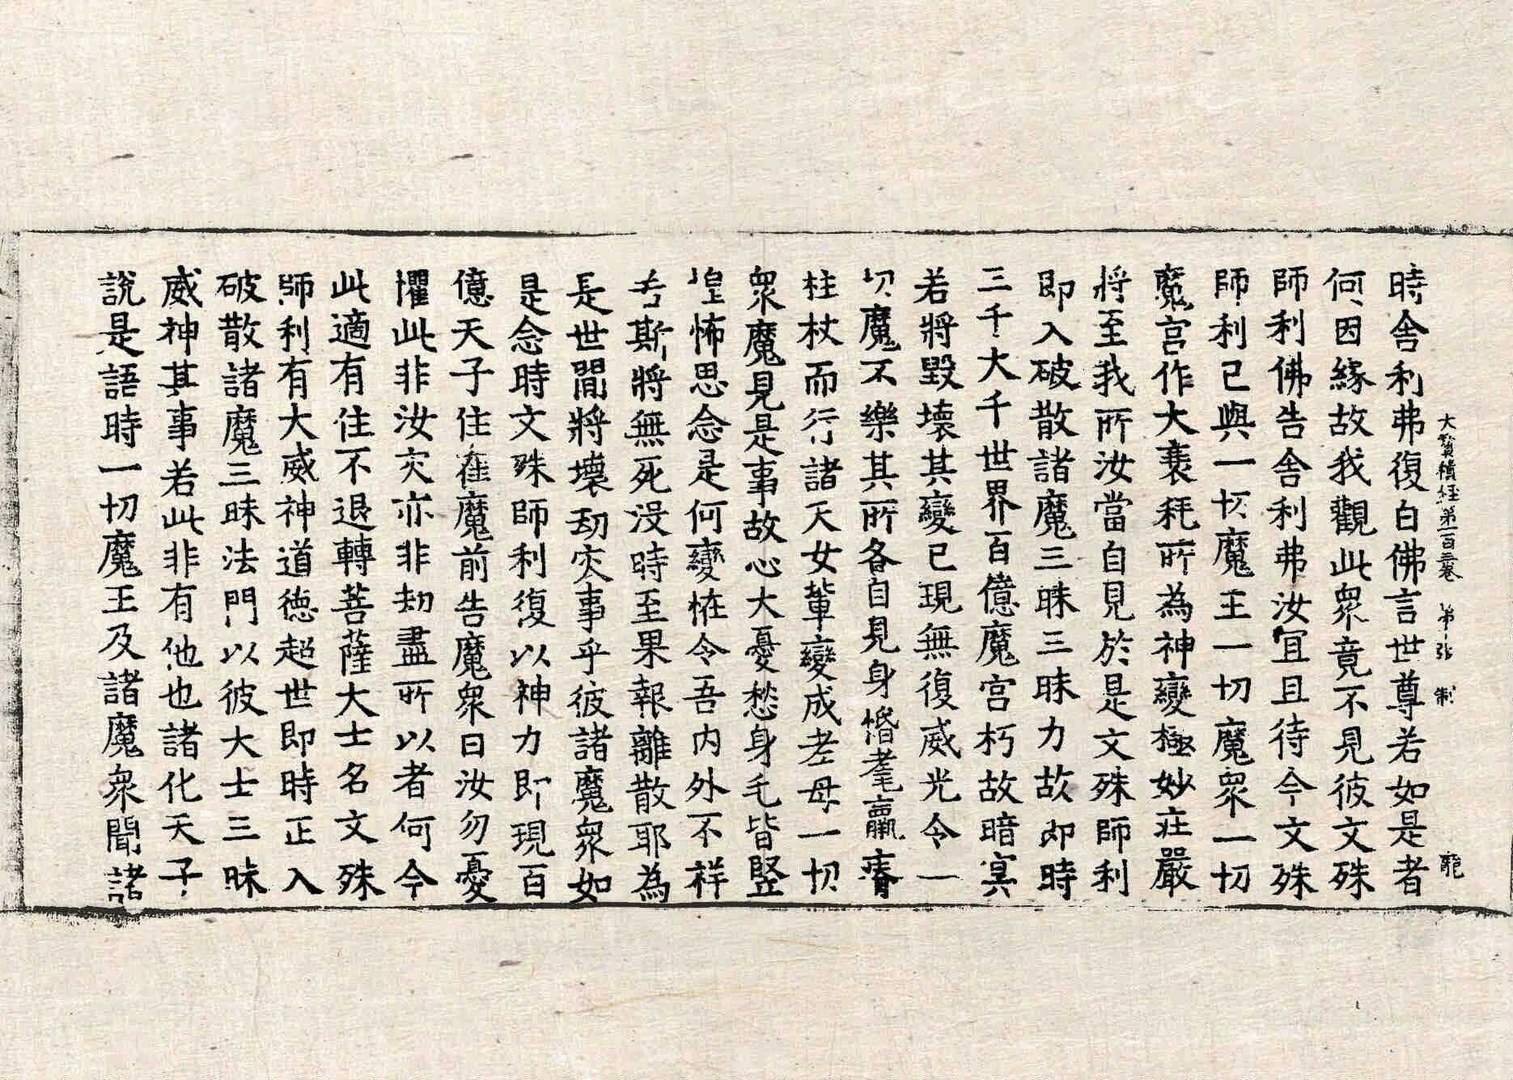 大寶積經第一百三卷　第　張　制　龍
時舍利弗復白佛言世尊若如是者
何因緣故我觀此衆竟不見彼文殊
師利佛告舍利弗汝宜且待今文殊
師利已與一切魔王一切魔衆一切
魔宮作大衰耗所為神變極妙莊嚴
將至我所汝當自見於是文殊師利
即入破散諸魔三昧三昧力故即時
三千大千世界百億魔宮朽故暗冥
若將毀壞其變已現無復威光令一
切魔不樂其所各自見身惛耄羸瘠
柱杖而行諸天女輩變成老母一切
衆魔見是事故心大憂愁身毛皆竪
惶怖思念是何變恠令吾內外不祥
若斯將無死没時至果報離散耶為
是世間將壞劫灾事乎彼諸魔衆如
是念時文殊師利復以神力即現百
億天子住在魔前告魔衆曰汝勿憂
懼此非汝灾亦非劫盡所以者何今
此適有住不退轉菩薩大士名文殊
師利有大威神道德超世即時正入
破散諸魔三昧法門以彼大士三昧
威神其事若此非有他也諸化天子
說是語時一切魔王及諸魔衆聞諸